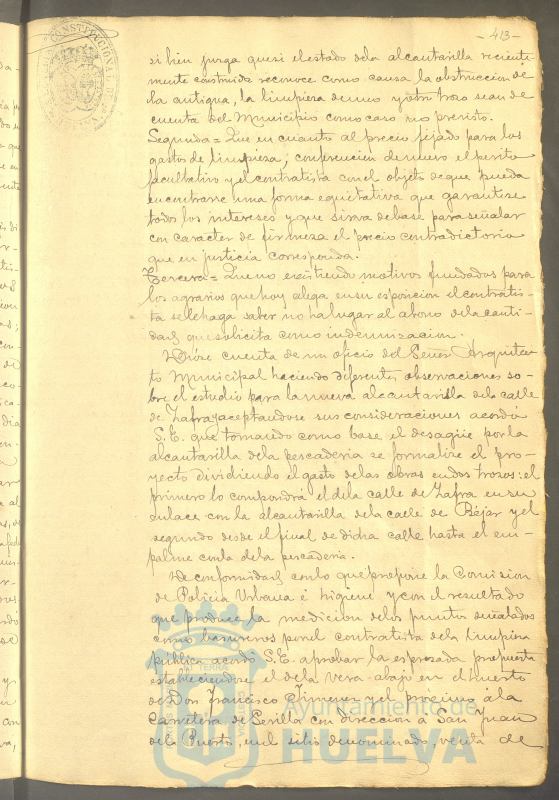 - 413 -
CONSTITUCIONAL
si bien juzga que si el estado de la alcantarilla reciente-
mente construida reconoce como causa la obstruccion de
la antigua, la limpieza de uno y otro trozo sean de
cuenta del Municipio como caso no previsto.
Segunda = Que en cuanto al precio fijado para los
gastos de limpieza, conferencien de nuevo el perito
facultativo y el contratista con el objeto de que pueda
encontrarse una forma equitativa que garantice
todos los intereses y que sirva de base para señalar
con caracter de firmeza el precio contradictorio
que en justicia corresponda.
Tercera = Que no existiendo motivos fundados para
los agravios que hoy alega en su esposicion el contratis-
ta se le haga saber no ha lugar al abono de la canti-
dad que solicita como indemnizacion.
Diose cuenta de un oficio del Señor Arquitec-
to Municipal haciendo diferentes observaciones so-
bre el estudio para la nueva alcantarilla de la calle
de Zafra y aceptandose sus consideraciones acordó
S.E. que tomando como base el desagüe por la
alcantarilla de la pescaderia se formalice el pro-
yecto dividiendo el gasto de las obras en dos trozos: el
primero lo compondrá el de la calle de Zafra en su
enlace con la alcantarilla de la calle de Béjar y el
segundo desde el final de dicha calle hasta el em-
palme con la de la pescaderia.
De conformidad con lo que propone la Comision
de Policia Urbana é higiene y con el resultado
que produce la medicion de los puntos señalados
como basureros por el contratista de la limpieza
pública acordó S.E. aprobar la espresada propuesta
estableciendose el de la vera abajo en el Huerto
de Don Francisco Jimenez y el próximo á la
Carretera de Sevilla con direccion a San Juan
del Puerto, en el sitio denominado, venta de
Ayuntamiento de
HUELVA